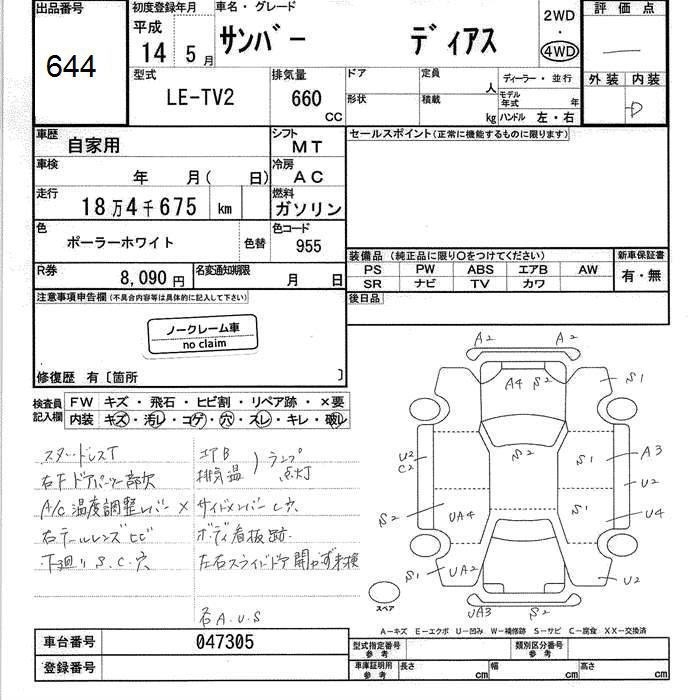 出品番号
644
初度登録年月
平成
14 5月
車名・グレード
サンバー ディアス
2WD
・
4WD
評価点
外装 内装
D
型式
LE-TV2
排気量
660
CC
ドア
形状
定員
人
積載
kg
ディーラー・並行
モデル年式 年
ハンドル 左・右
車歴
自家用
シフト
MT
車検
年 月( 日)
冷房
AC
走行
18万4千675 km
燃料
ガソリン
色
ポーラーホワイト
色替
色コード
955
R券
8,090 円
名変通知期限
月 日
セールスポイント(正常に機能するものに限ります)
装備品(純正品に限り○をつけてください)
PS PW ABS エアB AW
SR ナビ TV カワ
新車保証書
有・無
後日品
注意事項申告欄(不具合内容等は具体的に記入して下さい)
ノークレーム車
no claim
修復歴 有〔箇所 〕
検査員
記入欄
FW キズ・飛石・ヒビ割・リペア跡・×要
内装 キズ・汚レ・コゲ・穴・スレ・キレ・破レ
スタッドレスT
右Fドアパーツ一部欠
A/C温度調整レバー×
右テールレンズヒビ
下廻りS.C.穴
エアB
排気温
ランプ
点灯
サイドメンバーし穴
ボディ看板跡
左右スライドドア開かず未検
各A.U.S
A2 A2
A4 S2
S1
S2
U2
C2
S1
A3
U2
S2
UA4
S1
U4
S1
UA2
U2
UA3
S2
スペア
A―キズ E―エクボ U―凹み W―補修跡 S―サビ C―腐食 XX―交換済
車台番号
047305
登録番号
型式指定番号
参考
類別区分番号
参考
車庫証明用
参考
長さ cm
幅 cm
高さ cm